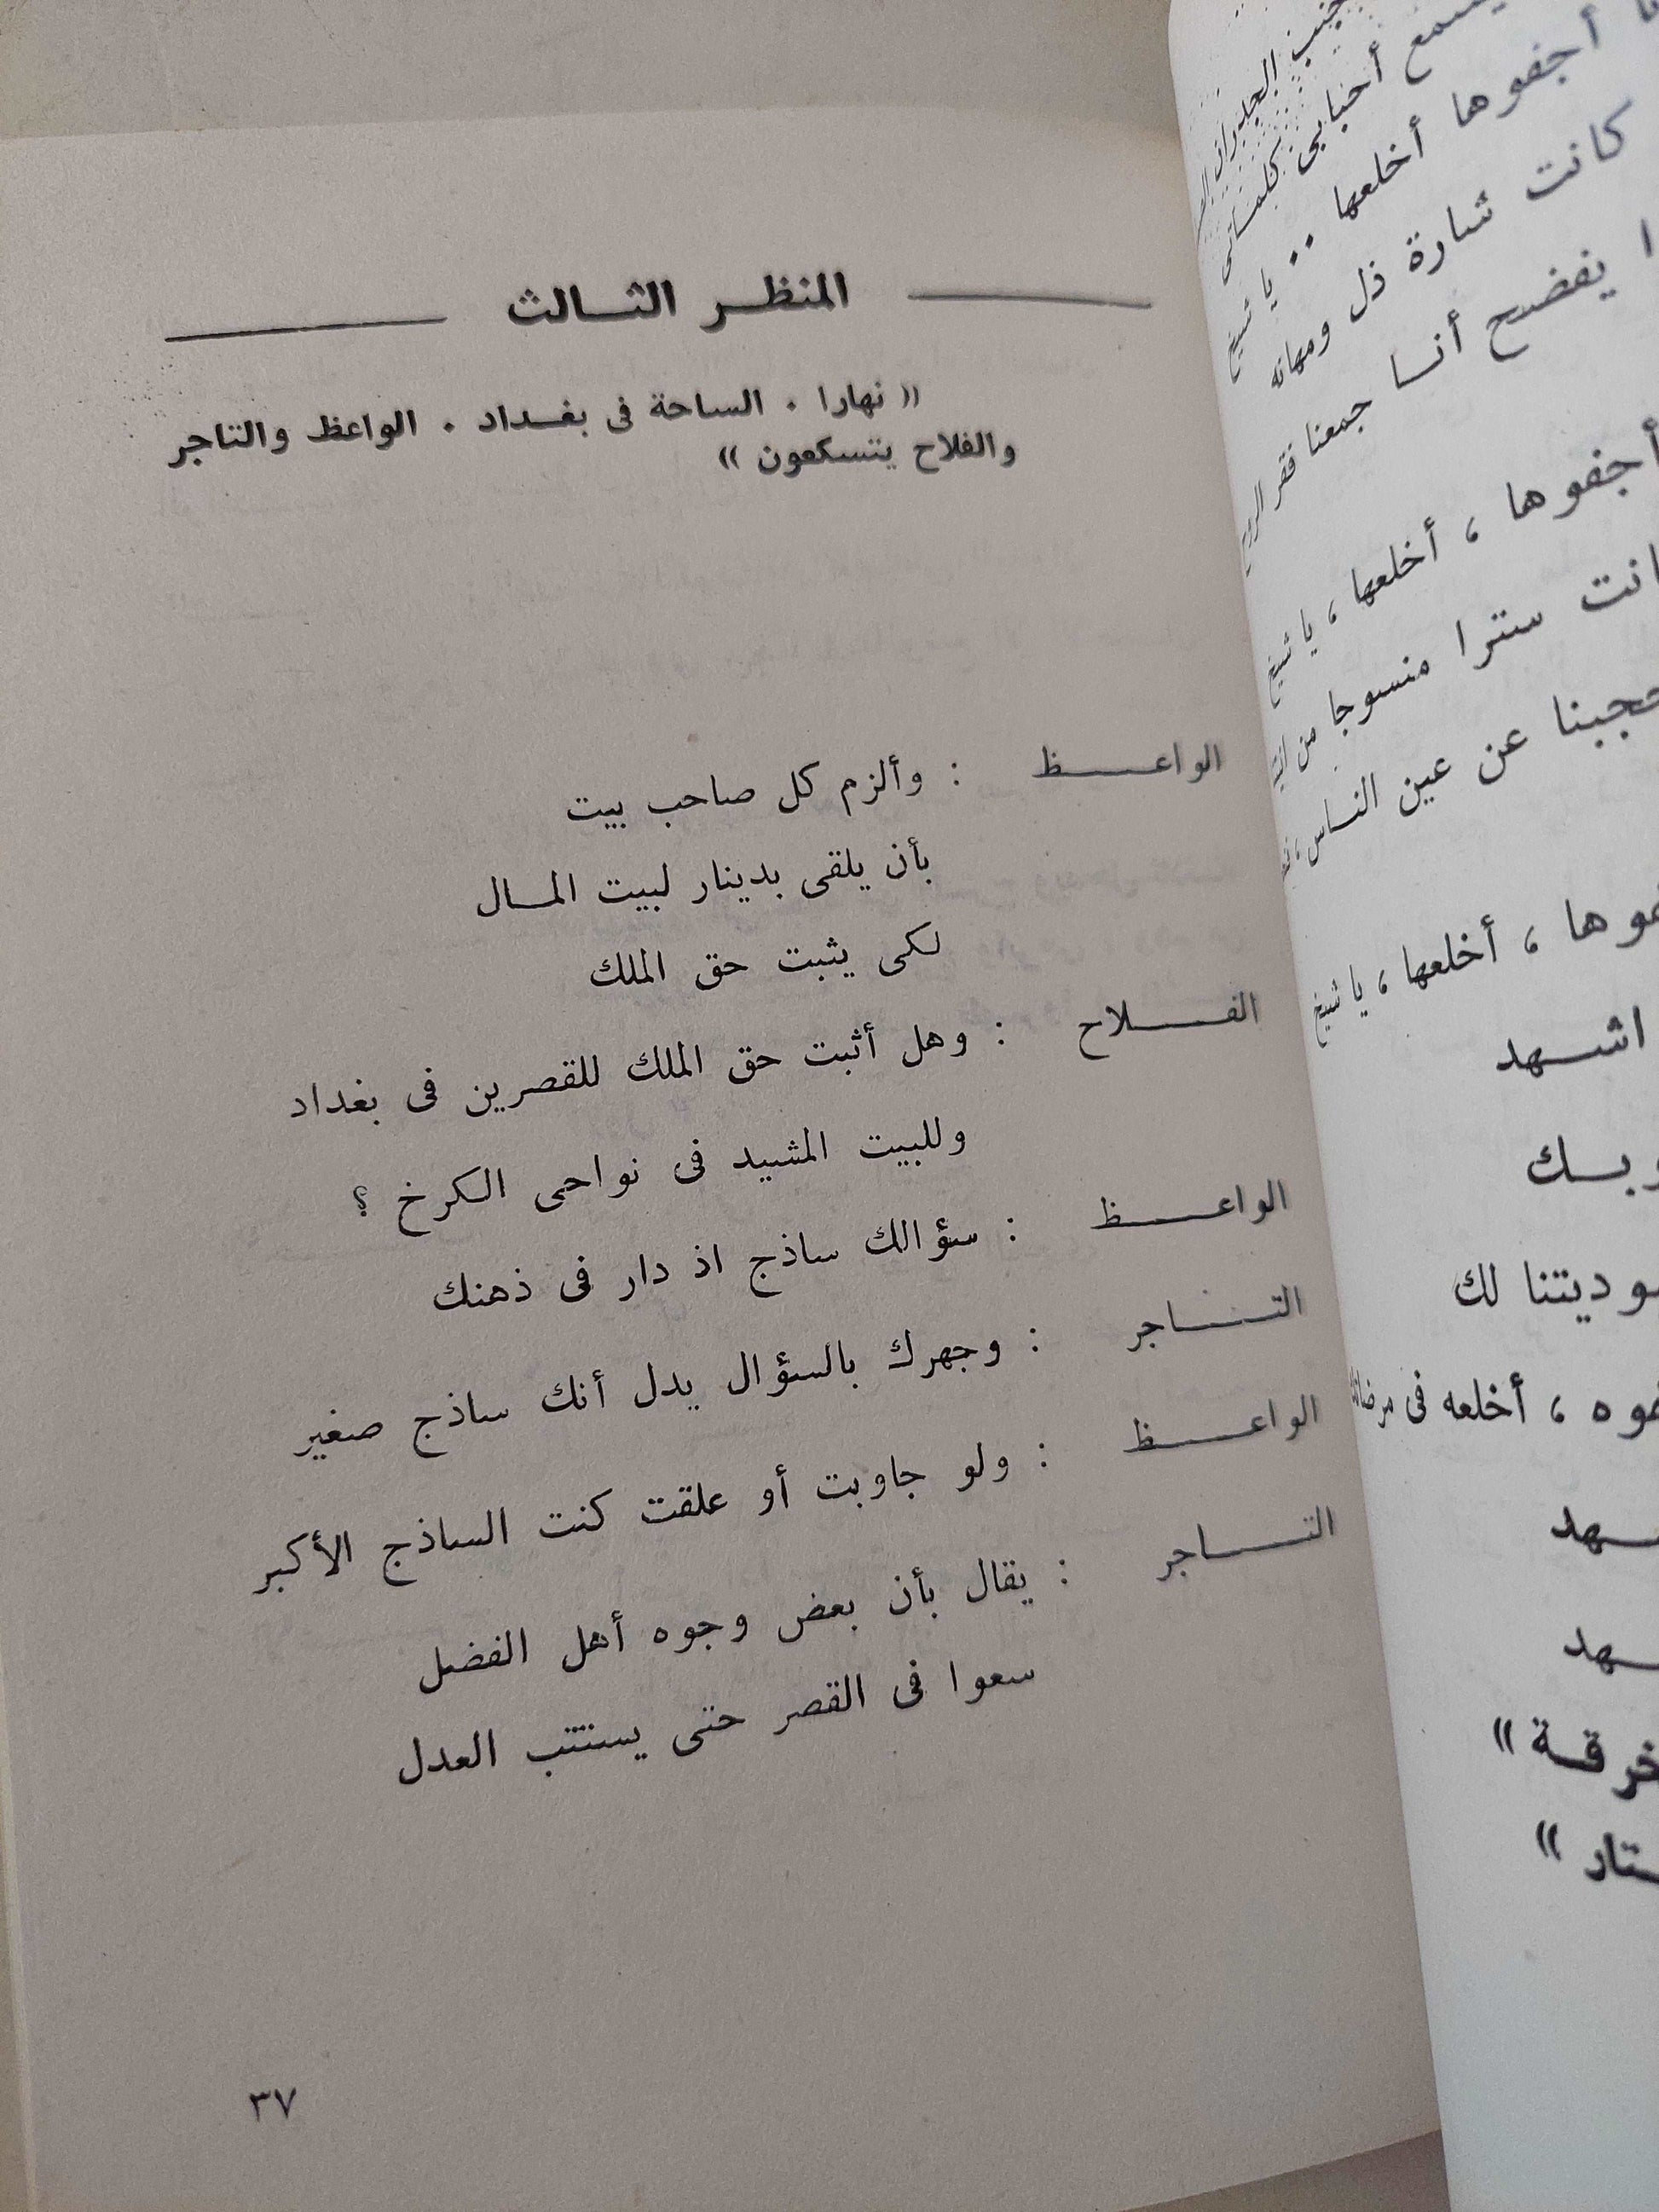 جنب الجدران
يسمع أحبابى كلماتى
أجفوها أخلعها .. يا شيخ
كانت شارة ذل ومهانه
يفضح أنا جمعنا فقر
أجفوها ، أخلعها ، يا شيخ
سترا منسوجا من
عن عين الناس ،
، أخلعها ، يا شيخ
اشهد
لك
، أخلعه فى
المنظر الثالث
« نهارا . الساحة فى بغداد . الواعظ والتاجر
والفلاح يتسكعون »
الواعظ : وألزم كل صاحب بيت
بأن يلقى بدينار لبيت المال
لكى يثبت حق الملك
الفلاح : وهل أثبت حق الملك للقصرين فى بغداد
وللبيت المشيد فى نواحى الكرخ ؟
الواعظ : سؤالك ساذج اذ دار فى ذهنك
التاجر : وجهرك بالسؤال يدل أنك ساذج صغير
الواعظ : ولو جاوبت أو علقت كنت الساذج الأكبر
التاجر : يقال بأن بعض وجوه أهل الفضل
سعوا فى القصر حتى يستتب العدل
٣٧